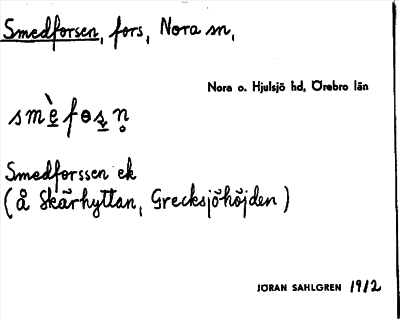 Smedforsen, fors, Nora sn,
Nora o. Hjulsjö hd, Örebro län
smè̲fɵs̬n̥
Smedforssen ek
(å Skärhyttan, Grecksjöhöjden)
JÖRAN SAHLGREN 1912